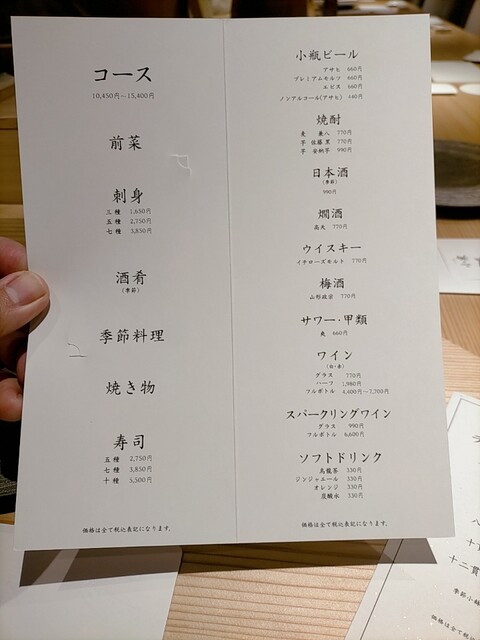 コース
10,450円～15,400円
前菜
刺身
三種 1,650円
五種 2,750円
七種 3,850円
酒肴
(季節)
季節料理
焼き物
寿司
五種 2,750円
七種 3,850円
十種 5,500円
価格は全て税込表記になります。
小瓶ビール
アサヒ 660円
プレミアムモルツ 660円
エビス 660円
ノンアルコール(アサヒ) 440円
焼酎
麦 兼八 770円
芋 佐藤 黒 770円
芋 安納芋 990円
日本酒
(季節)
990円
燗酒
高天 770円
ウイスキー
イチローズモルト 770円
梅酒
山形政宗 770円
サワー・甲類
爽 660円
ワイン
(白・赤)
グラス 770円
ハーフ 1,980円
フルボトル 4,400円～7,700円
スパークリングワイン
グラス 990円
フルボトル 6,600円
ソフトドリンク
烏龍茶 330円
ジンジャエール 330円
オレンジ 330円
炭酸水 330円
価格は全て税込表記になります。
十二貫
季節小鉢
価格は全て税込